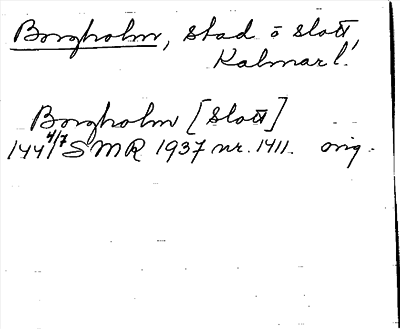 Borgholm, stad o slott,
Kalmar l.
Borgholm [slott]
1441 4/7 SMR 1937 nr. 1411. orig.